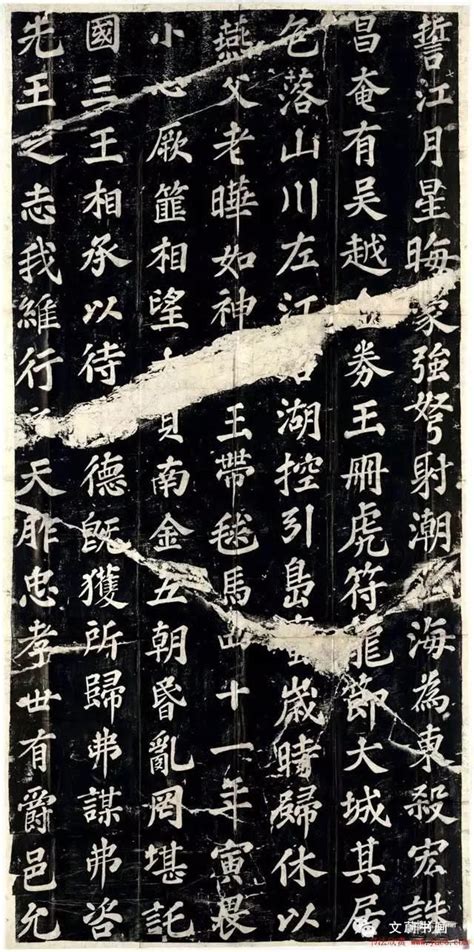 誓江月星晦蒙強弩射潮海為東殺宏誅
昌奄有吳越金券玉冊虎符龍節大城其居
包落山川左江湖控引島蠻歲時歸休以
燕父老曄如神玉帶毬馬四十一年寅畏
小心厥篚相望貝南金五朝昬亂罔堪託
國三王相承以待德既獲所歸弗謀弗咨
先王之志我維行之天胙忠孝世有爵邑允